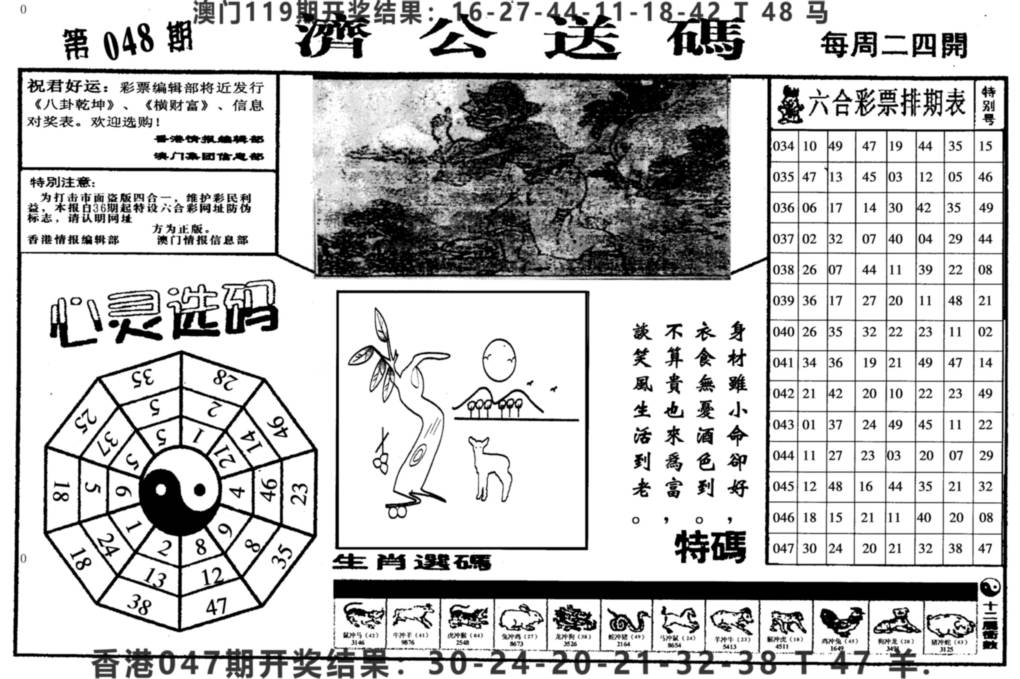 澳门119期开奖结果：16-27-44-11-18-42 T 48 马
第048期
濟公送碼
每周二四開
祝君好运：彩票编辑部将近发行
《八卦乾坤》、《横财富》、信息
对奖表。欢迎选购！
香港情报编辑部
澳门集团信息部
特别注意：
为打击市面盗版四合一，维护彩民利
益，本报自36期起特设六合彩网址防伪
标志，请认明网址
方为正版。
香港情报编辑部 澳门情报信息部
六合彩票排期表 特别号
034 10 49 47 19 44 35 15
035 47 13 45 03 12 05 46
036 06 17 14 30 42 35 49
037 02 32 07 40 04 29 44
038 26 07 44 11 39 22 08
039 36 17 27 20 11 48 21
040 26 35 32 22 23 11 02
041 34 36 19 21 49 47 14
042 21 42 20 10 22 23 49
043 01 37 24 49 45 11 22
044 11 27 23 03 20 07 29
045 12 48 16 44 35 21 32
046 18 15 21 11 40 20 08
047 30 24 20 21 32 38 47
心灵选码
35 28
25 5 2 46
37 5 1 14
5 21
18 5 6 4 46 23
1 9
18 24 2 8 8 35
13 12
38 47
身材雖小命卻好，
衣食無憂酒色到。
不算貴也來為富，
談笑風生活到老。
特碼
生肖選碼
鼠冲马（42） 牛冲羊（41） 虎冲猴（44） 兔冲鸡（27） 龙冲狗（38） 蛇冲猪（49） 马冲鼠（24） 羊冲牛（23） 猴冲虎（10） 鸡冲兔（45） 狗冲龙（20） 猪冲蛇（43）
3146 9876 2548 8673 3526 2164 8654 5413 4511 1649 3125
十二屬衝數
香港047期开奖结果：30-24-20-21-32-38 T 47 羊.